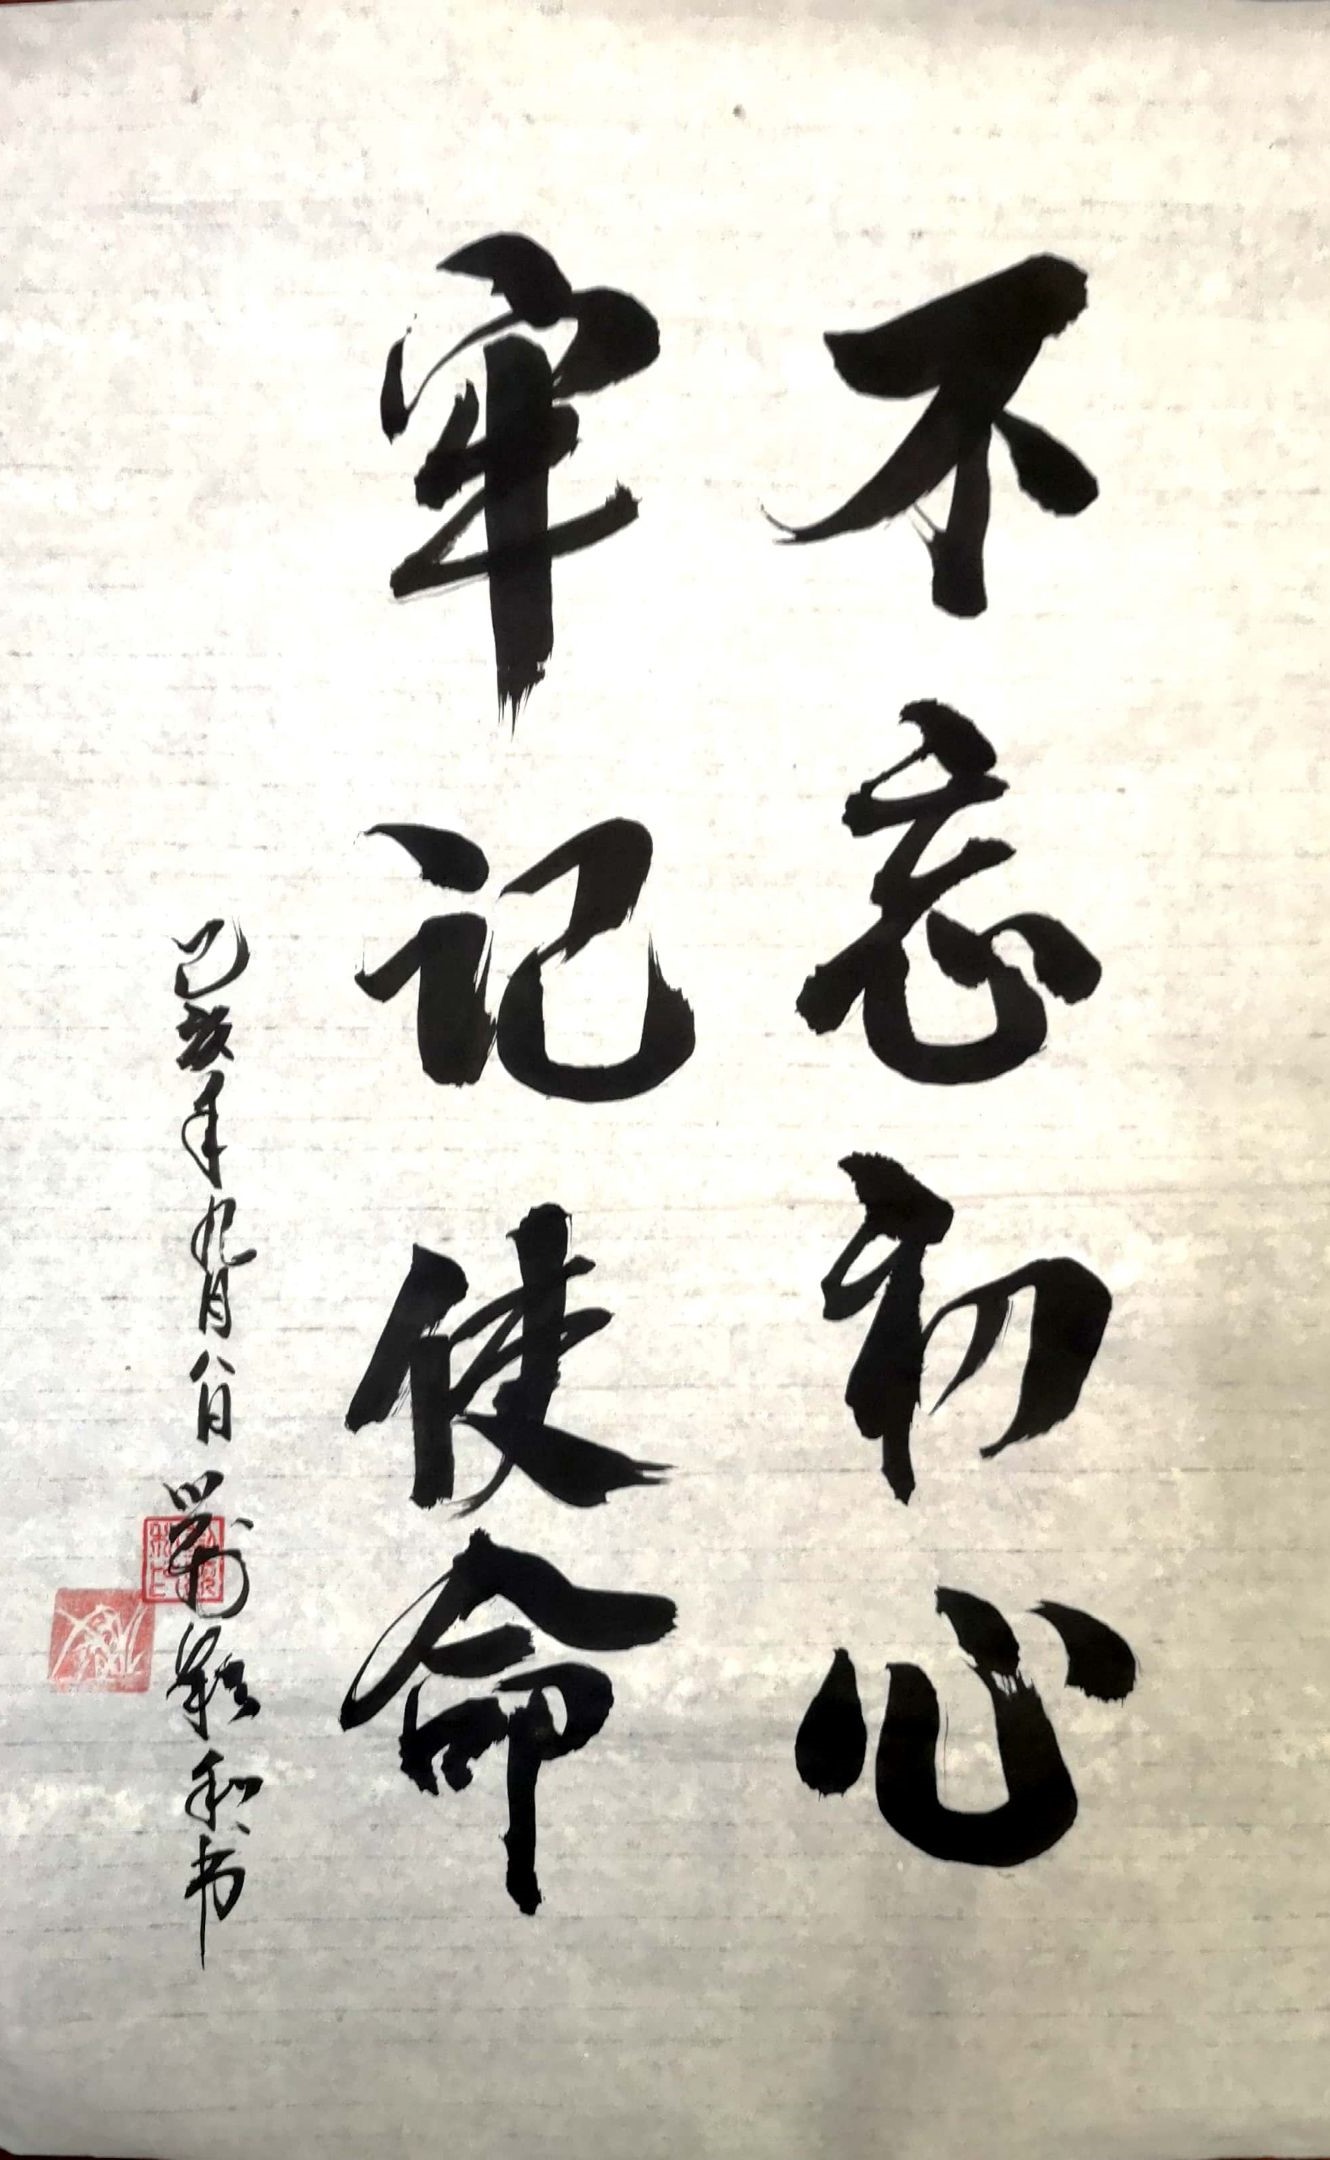 不忘初心
牢记使命
己亥年九月八日 和书